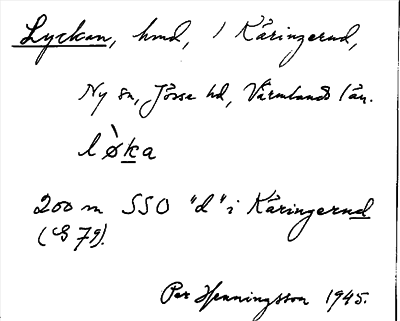 Lyckan, hmd, i Käringerud,
Ny sn, Jösse hd, Värmlands län.
lø̀ka
200 m SSO "d" i Käringerud
(G 79).
Per Henningsson 1945.